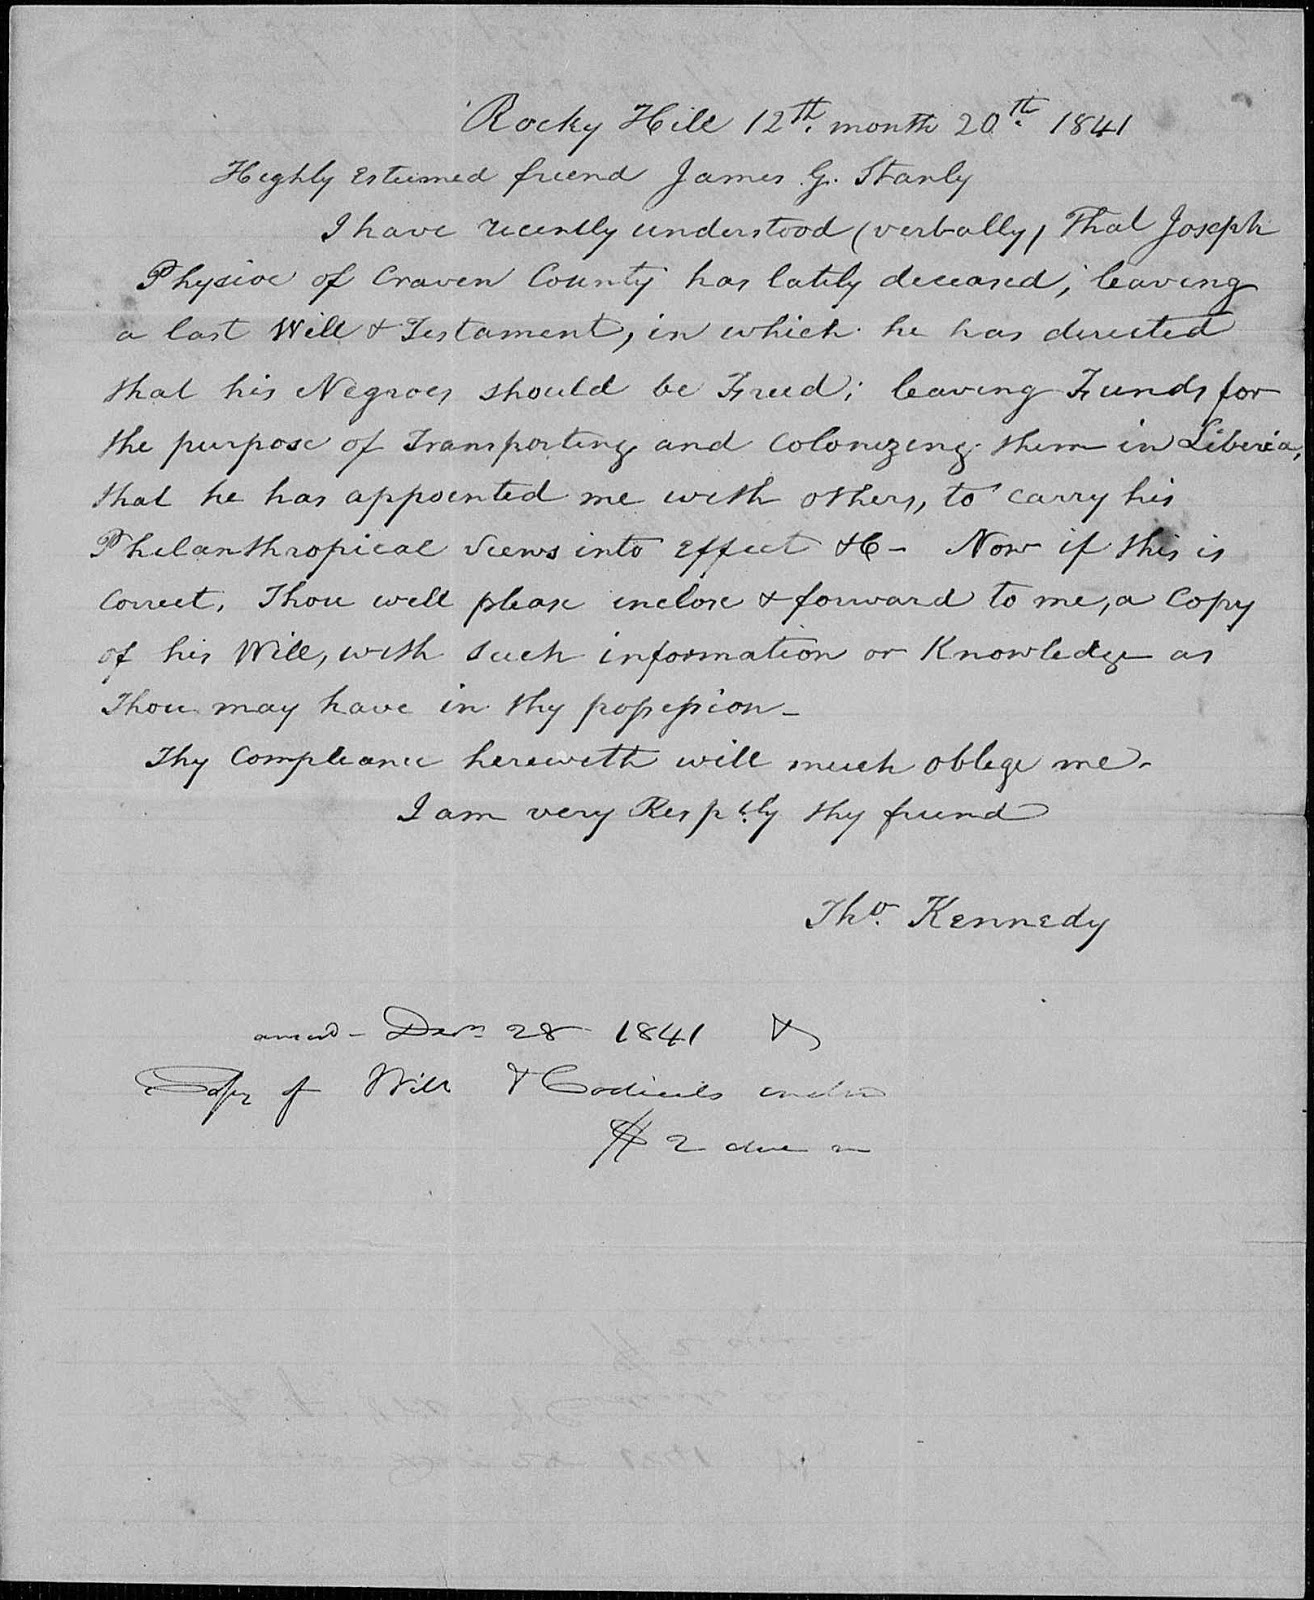 Rocky Hill 12th. month 20th. 1841
Highly Esteemed friend James G. Stanly
I have recently understood (verbally) That Joseph
Physioc of Craven County has lately deceased; leaving
a last Will & Testament, in which he has directed
that his Negroes should be Freed; leaving Funds for
the purpose of Transporting and Colonizing them in Liberia,
that he has appointed me with others, to carry his
Philanthropical Views into Effect &C - Now if this is
Correct, Thou will please inclose & forward to me, a Copy
of his Will, with Such information or Knowledge as
Thou may have in thy possession -
Thy Compliance herewith will much oblige me -
I am very Resptly. thy friend
Tho. Kennedy
Decr 28 1841 &
Copy of Will & Codicils
$2 due